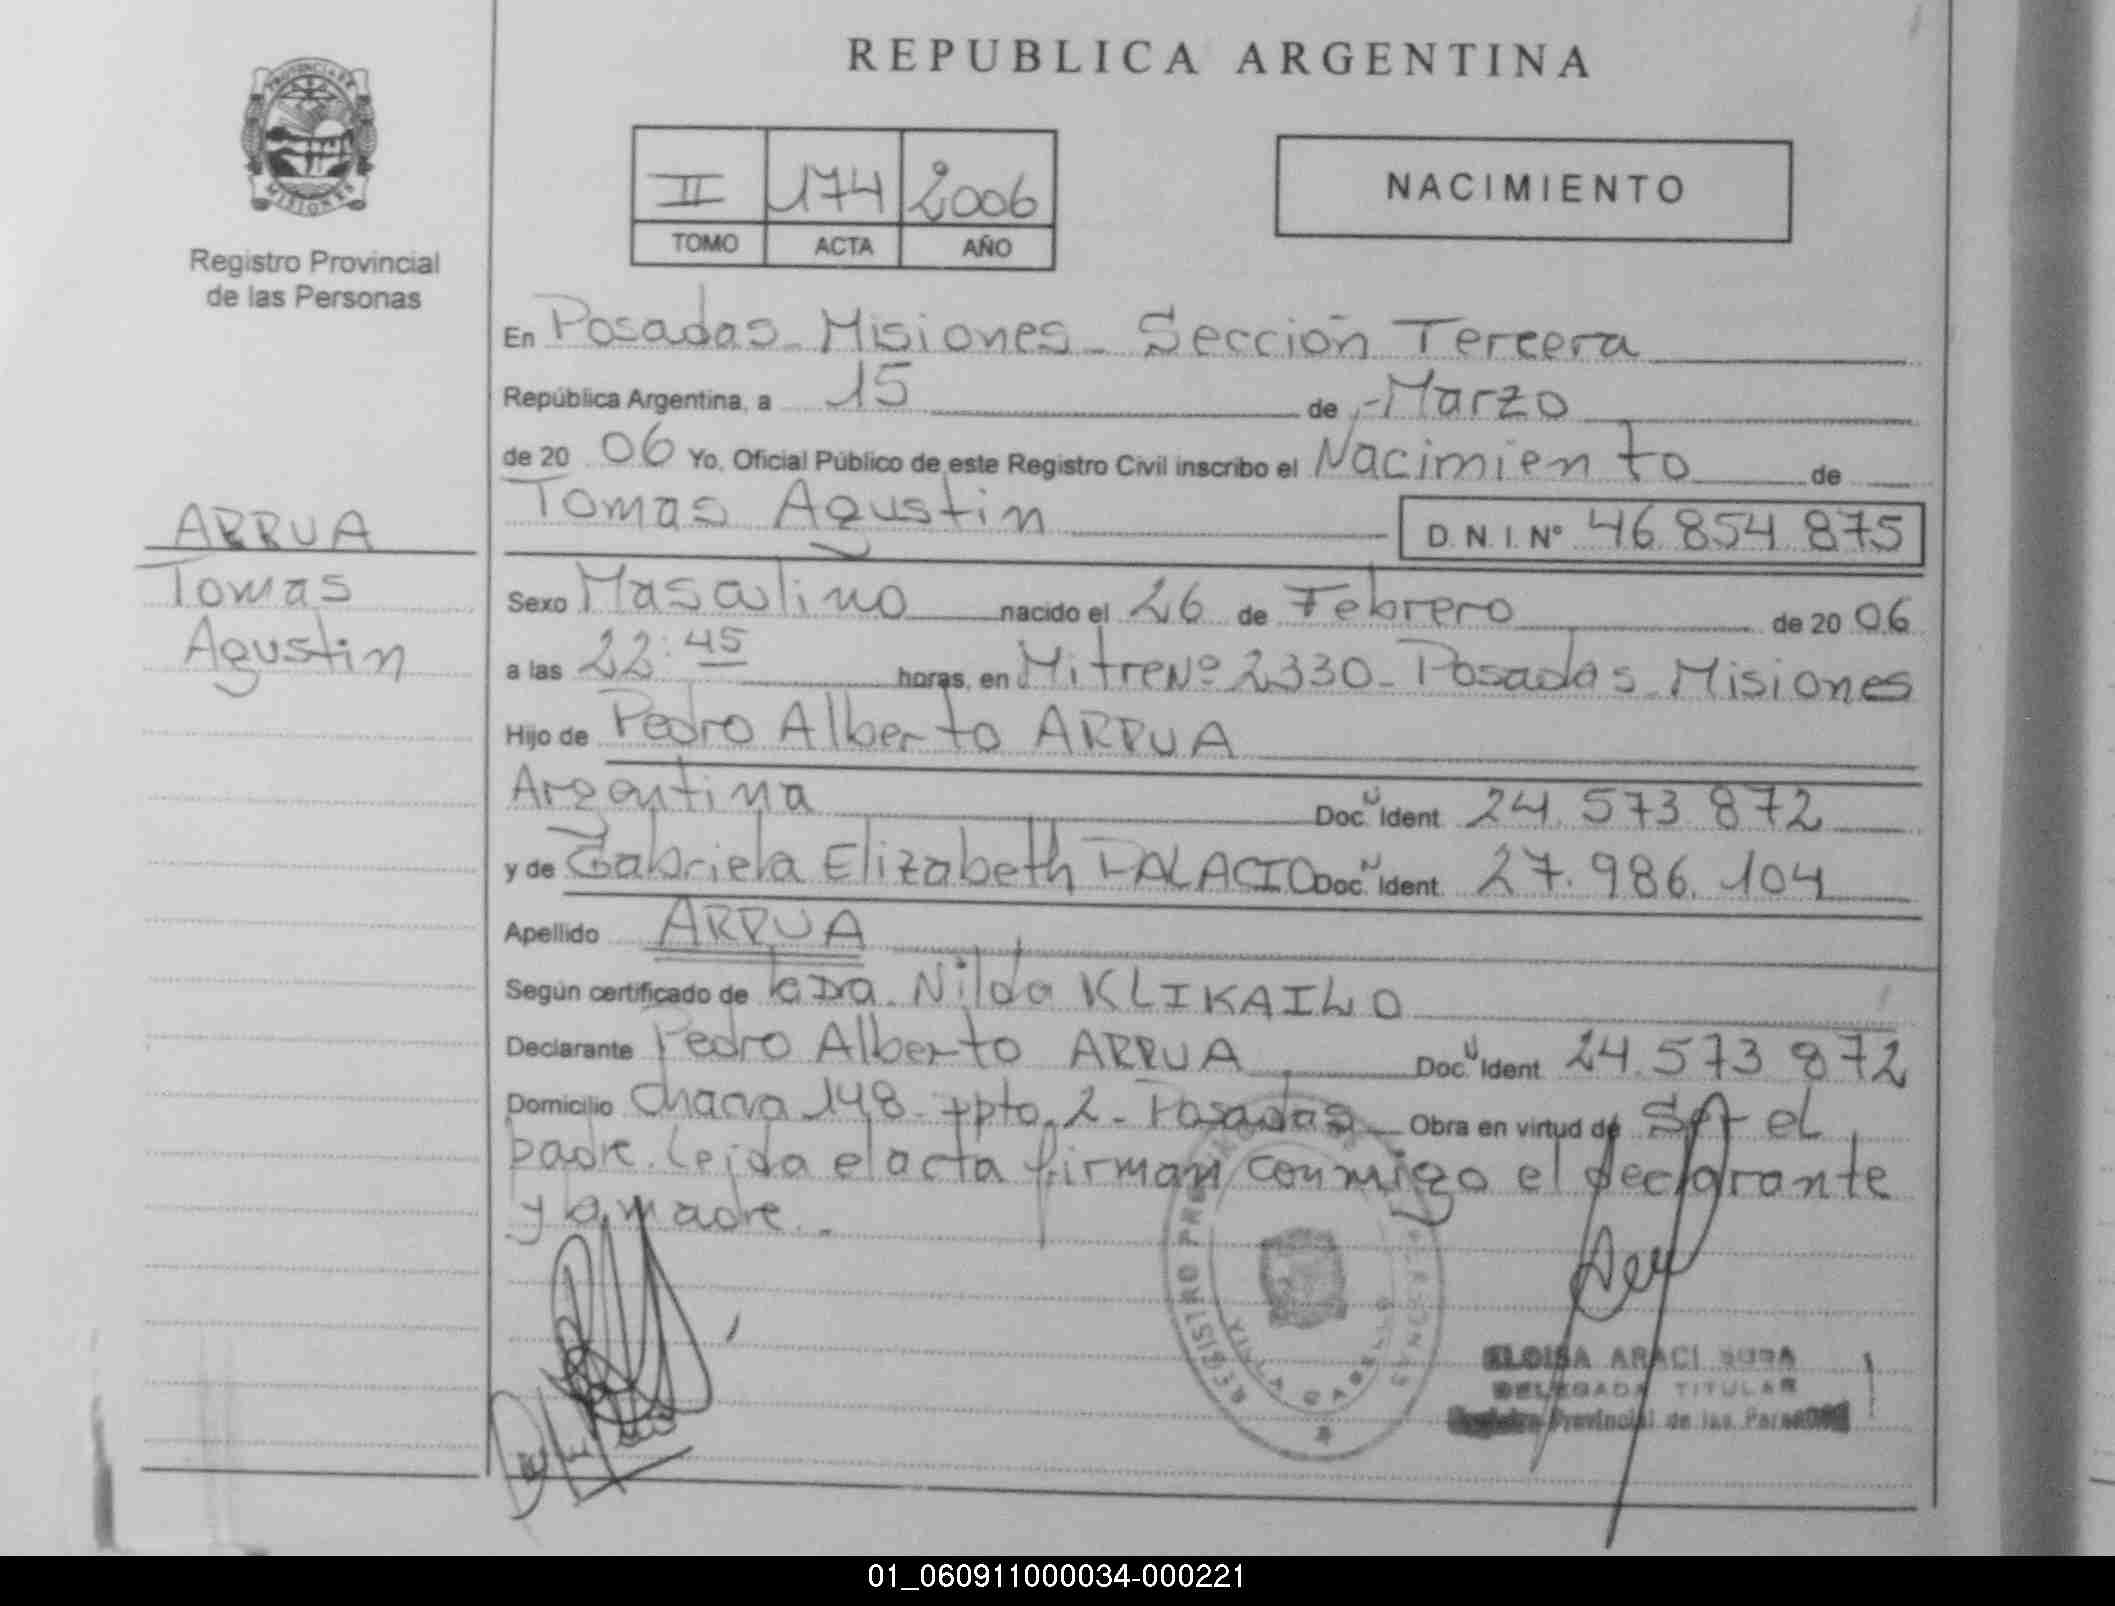 REPUBLICA ARGENTINA
PROVINCIA DE
MISIONES
Registro Provincial
de las Personas
II 174 2006
TOMO ACTA AÑO
NACIMIENTO
En Posadas - Misiones - Sección Tercera
República Argentina, a 15 de Marzo
de 20 06 Yo, Oficial Público de este Registro Civil inscribo el Nacimiento de
Tomas Agustin D.N.I. Nº 46.854.875
ARRUA
Tomas
Agustin
Sexo Masculino nacido el 26 de Febrero de 20 06
a las 22:45 horas, en Mitre Nº 2330 - Posadas - Misiones
Hijo de Pedro Alberto ARRUA
Argentina Doc. Ident. 24.573.872
y de Gabriela Elizabeth PALACIO Doc. Ident. 27.986.104
Apellido ARRUA
Según certificado de la Dra. Nilda KLIKAILO
Declarante Pedro Alberto ARRUA Doc. Ident. 24.573.872
Domicilio Chacra 148 - Dpto. 2 - Posadas Obra en virtud de Ser el
padre. Leida el acta firman conmigo el declarante
y la madre.-
REGISTRO
VILLA CABELLO
ELOISA ARACI
DELEGADA TITULAR
Registro Provincial de las Personas
01_060911000034-000221